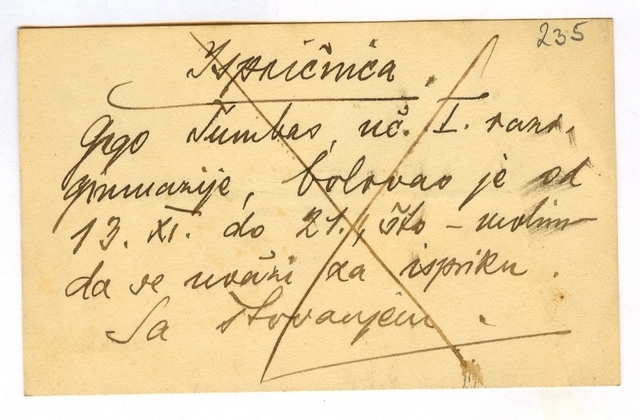 235
Ispričnica.
Grgo Tumbas, uč. I. razr.
gimnazije, bolovao je od
13. XI. do 21., što - molim
da se uvaži za ispriku.
Sa štovanjem.